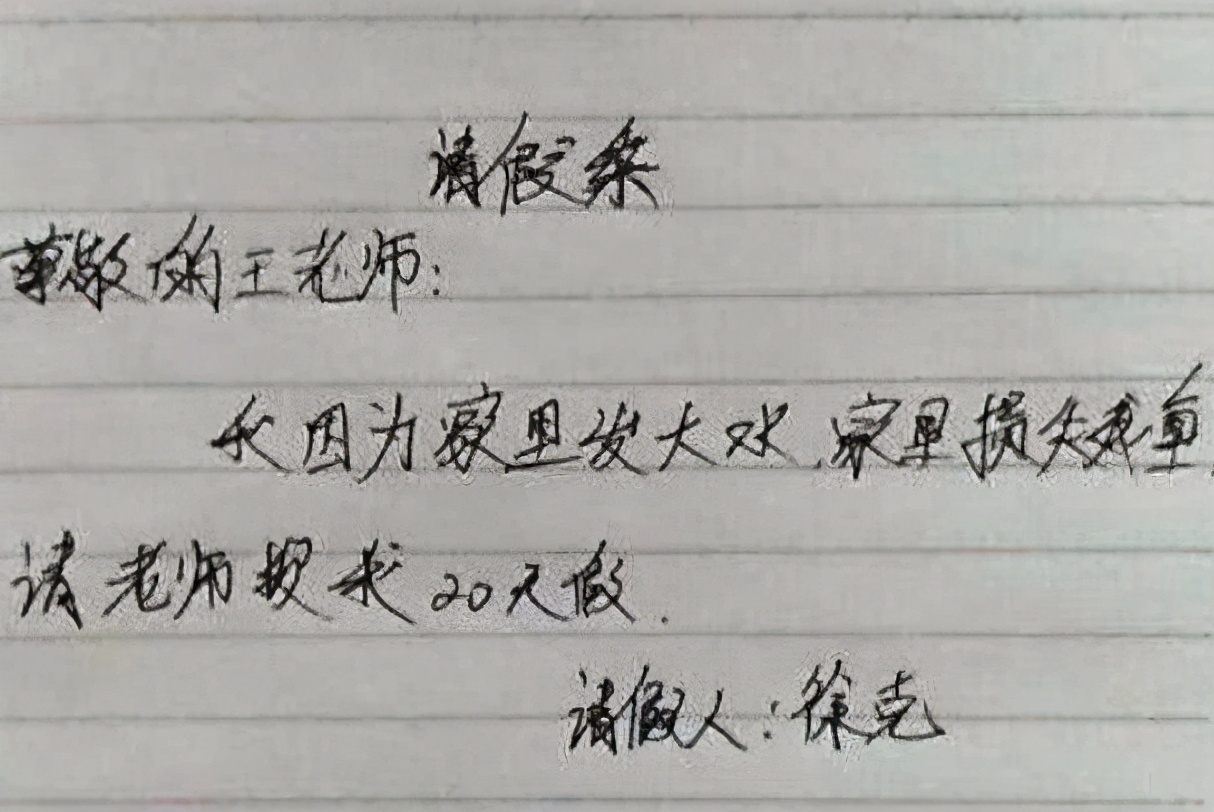 请假条
尊敬的王老师:
我因为家里发大水.家里损失惨重
请老师批我20天假.
请假人:徐克